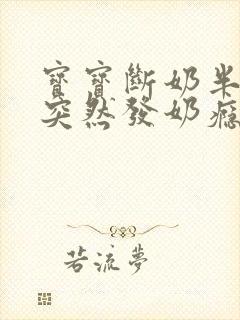 寶寶斷奶半
突然發奶癮
若流夢